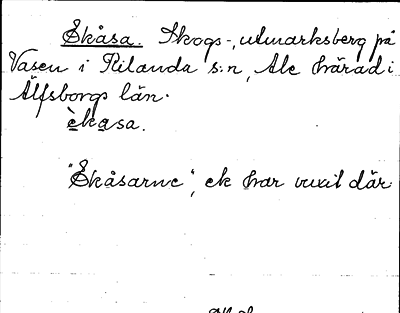 Ekåsa. Skogs-, utmarksberg på
Vasen i Rilanda s:n, Ale härad i
Älfsborgs län.
èkasa.
"Ekåsarne", ek har vuxit där